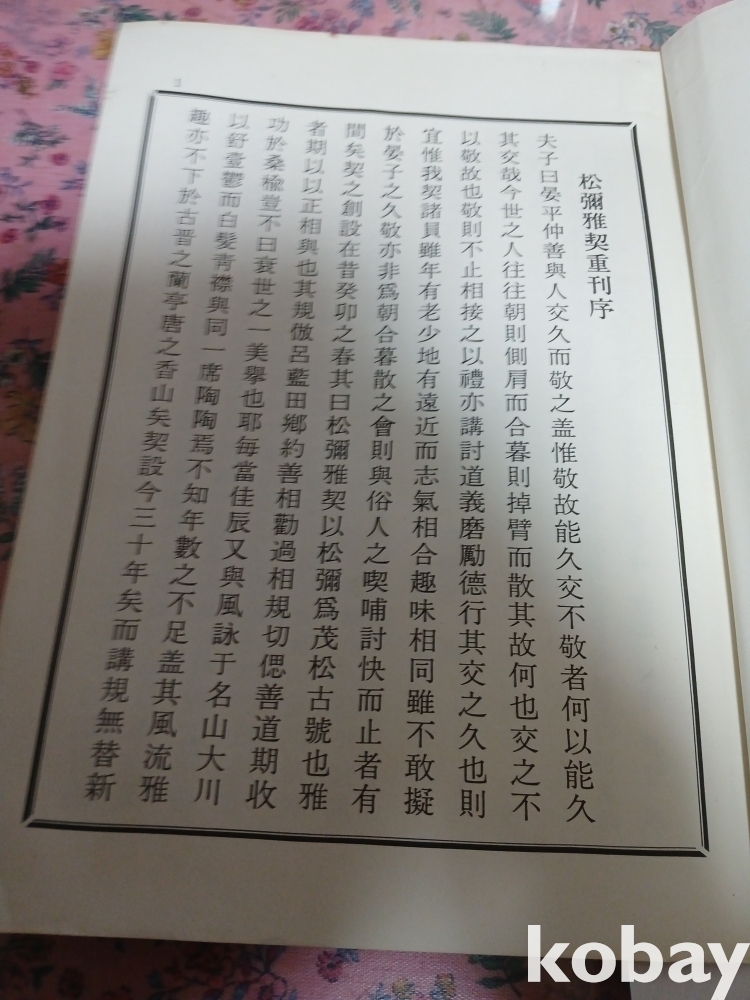 松彌雅契重刊序
夫子曰晏平仲善與人交久而敬之盖惟敬故能久交不敬者何以能久
其交哉今世之人往往朝則側肩而合暮則掉臂而散其故何也交之不
以敬故也敬則不止相接之以禮亦講討道義磨勵德行其交之久也則
宜惟我契諸員雖年有老少地有遠近而志氣相合趣味相同雖不敢擬
於晏子之久敬亦非爲朝合暮散之會則與俗人之喫哺討快而止者有
間矣契之創設在昔癸卯之春其曰松彌雅契以松彌爲茂松古號也雅
者期以以正相與也其規倣呂藍田鄕約善相勸過相規切偲善道期收
功於桑楡豈不曰衰世之一美擧也耶每當佳辰又與風詠于名山大川
以舒壹鬱而白髮靑襟與同一席陶陶焉不知年數之不足盖其風流雅
趣亦不下於古晋之蘭亭唐之香山矣契設今三十年矣而講規無替新
1
kobay